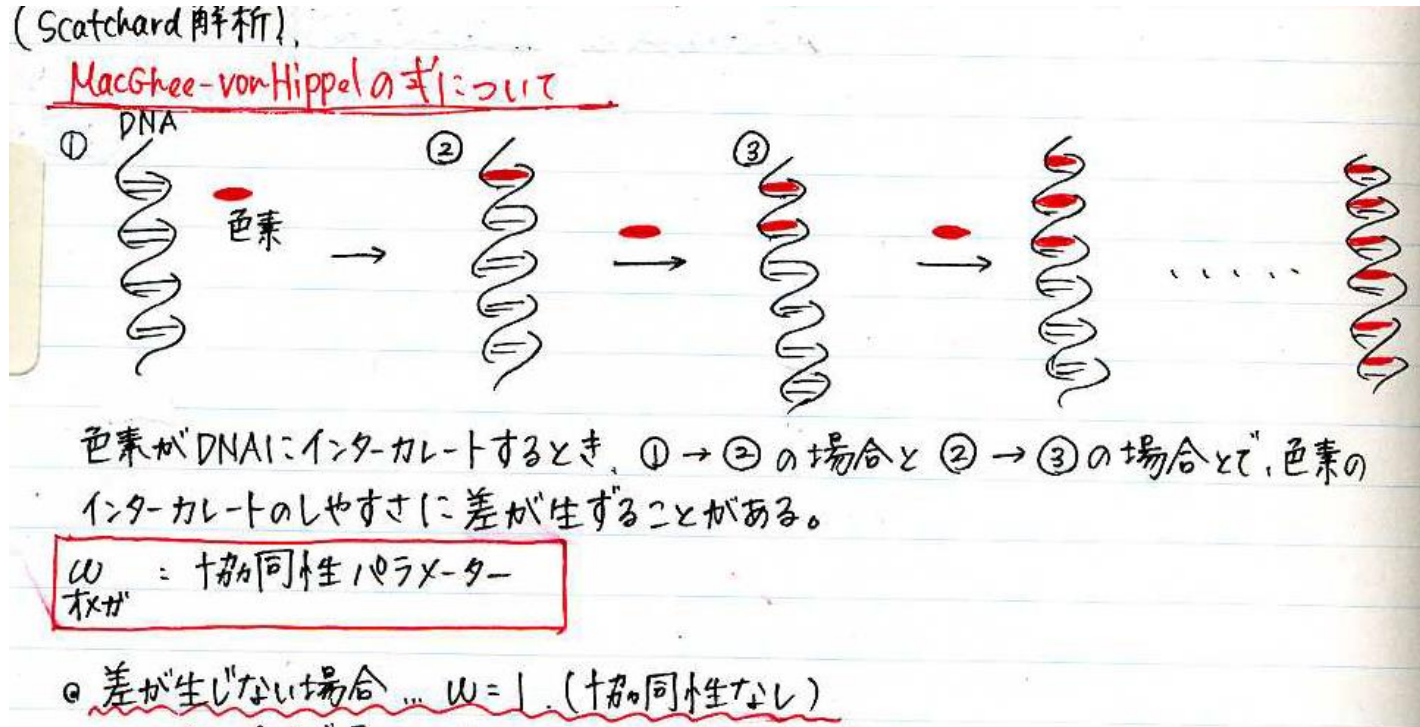 (Scatchard解析)
MacGhee-vonHippelの式について
① DNA ② ③
色素
→ → → ・・・・・
色素がDNAにインターカレートするとき、①→②の場合と②→③の場合とで、色素の
インターカレートのしやすさに差が生ずることがある。
ω : 協同性パラメーター
オメガ
◎ 差が生じない場合 … ω=1.(協同性なし)